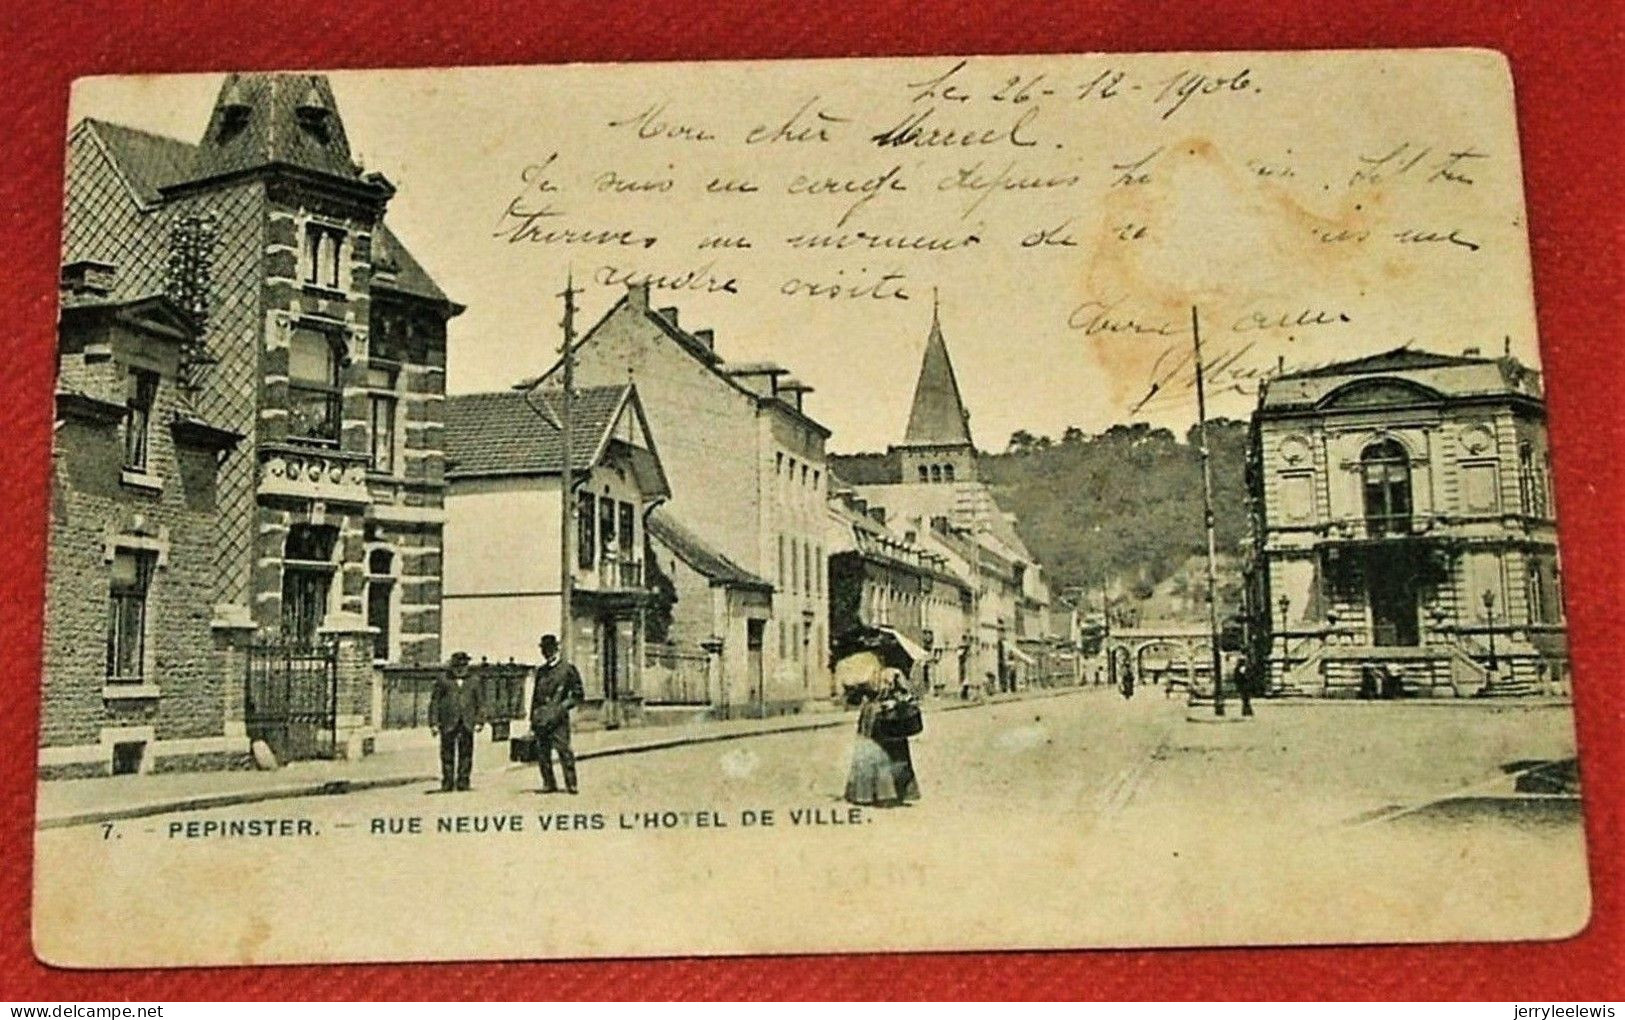 Le 26-12-1906.
Mon cher Marcel.
Je suis en congé depuis
trouves un moment de me
rendre visite
7. - PEPINSTER. - RUE NEUVE VERS L'HOTEL DE VILLE.
delcampe.net
jerryleelewis